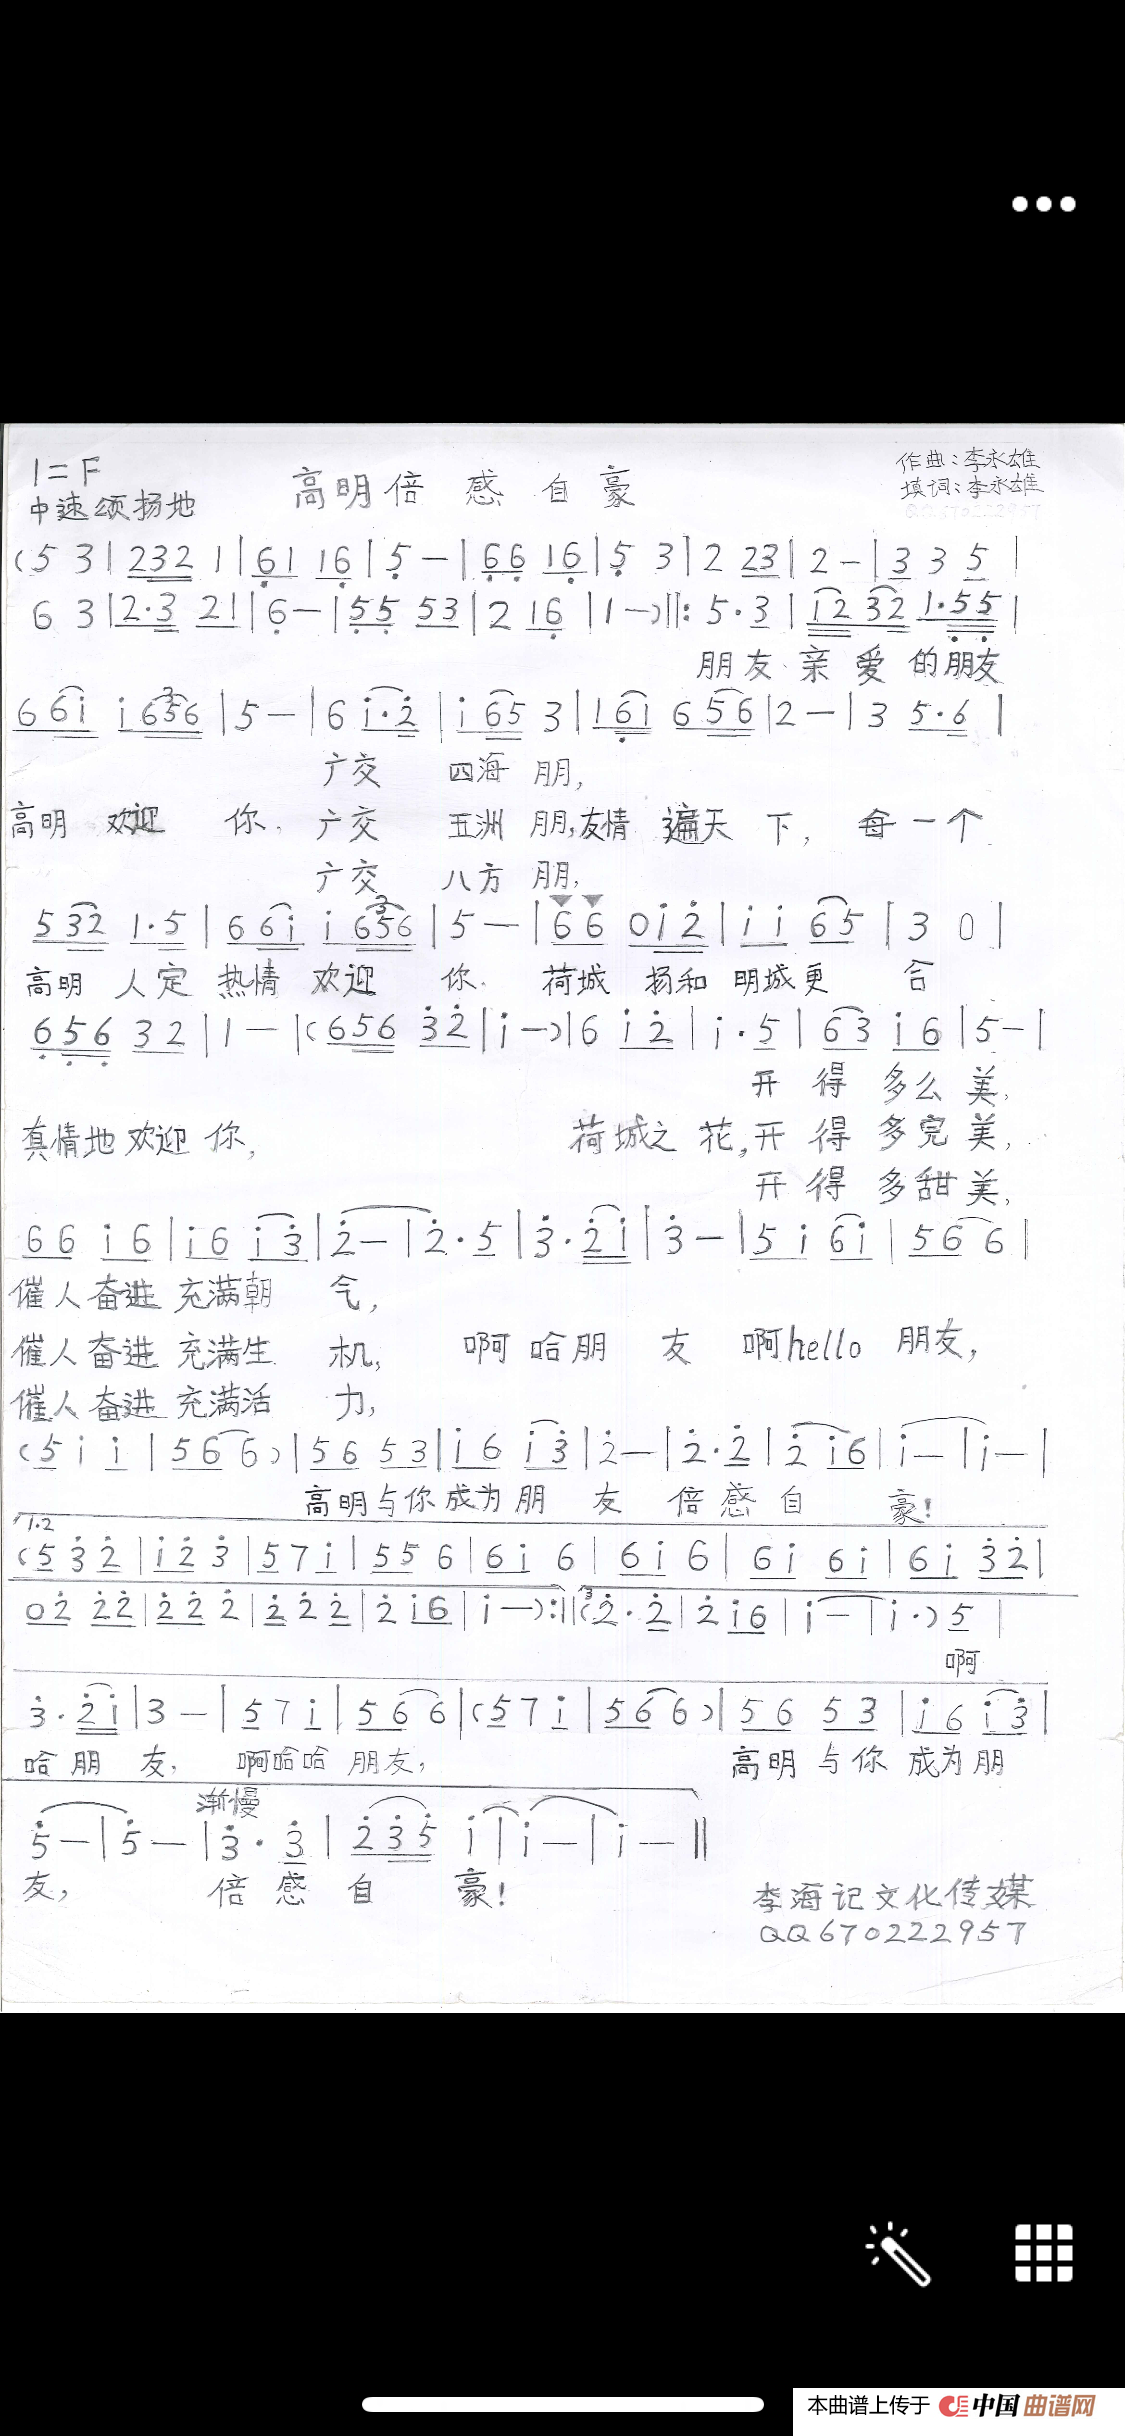 1=F
高明倍感自豪
作曲:李永雄
中速颂扬地
填词:李永雄
(5 3 | 232 1 | 61 16 | 5 — | 66 16 | 5 3 | 2 23 | 2 — | 3 3 5 |
6 3 | 2·3 21 | 6 — | 55 53 | 2 16 | 1 —) ‖: 5·3 | 12 32 1·55 |
朋友亲爱的朋友
6 6i i 656 | 5 — | 6 i·2 | i 65 3 | 161 656 | 2 — | 3 5·6 |
广交 四海 朋,
高明 欢迎 你. 广交 五洲 朋,友情 遍天 下, 每一个
广交 八方 朋,
5 32 1·5 | 6 6i i 656 | 5 — | 66 0i2 | i i 65 | 3 0 |
高明 人定 热情 欢迎 你. 荷城 扬和 明城更 合
656 32 | 1 — | (656 32 | i —) | 6 i2 | i·5 | 63 i6 | 5 — |
开 得 多么 美,
真情地欢迎 你, 荷城之 花,开 得 多完 美,
开 得 多甜 美,
66 i6 | i6 i3 | 2 — | 2·5 | 3·2i | 3 — | 5 i 6i | 56 6 |
催人奋进 充满朝 气,
催人奋进 充满生 机, 啊 哈朋 友 啊hello 朋友,
催人奋进 充满活 力,
(5 i i | 56 6) | 56 53 | i6 i3 | 2 — | 2·2 | 2 i6 | i — | i — |
高明与你成为朋 友 倍感自 豪!
1.2
(5 3 2 | i2 3 | 57 i | 55 6 | 6i 6 | 6i 6 | 6i 6i | 6i 32 |
02 22 | 22 2 | 2 2 2 | 2 i6 | i —) :‖ 3 (2·2 | 2 i6 | i — | i·) 5 |
啊
3·2i | 3 — | 5 7 i | 56 6 | (5 7 i | 56 6) | 56 53 | i6 i3 |
哈朋 友, 啊哈哈 朋友, 高明 与你 成为朋
渐慢
5 — | 5 — | 3·3 | 2 35 i | i — | i — ‖
友, 倍感 自 豪!
李海记文化传媒
QQ670222957
本曲谱上传于 中国曲谱网